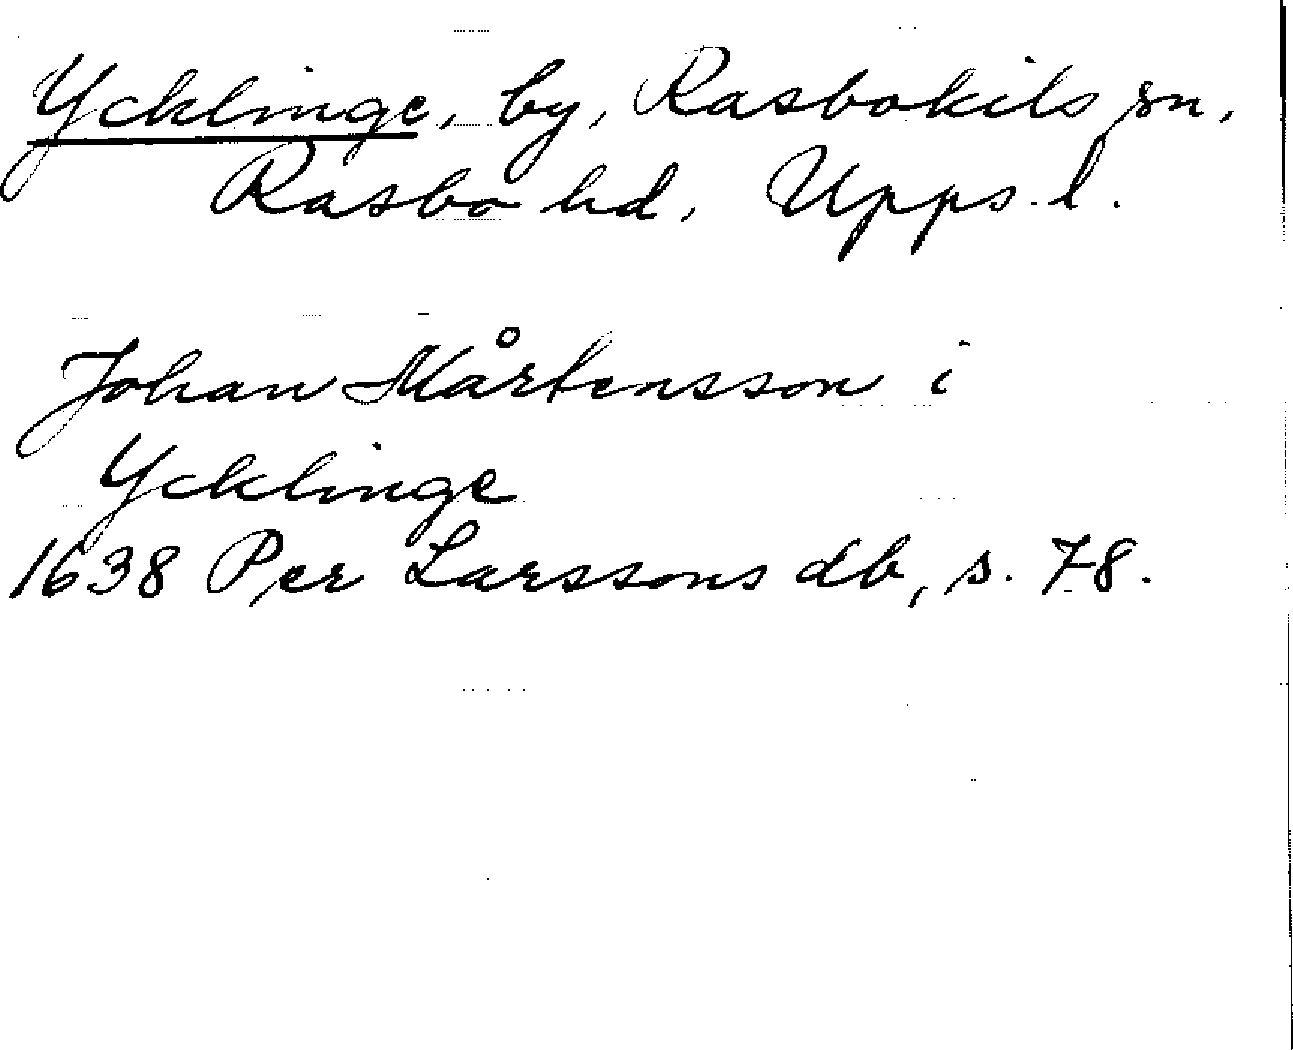 Ycklinge, by, Rasbokils sn,
Rasbo hd, Upps. l.
Johan Mårtensson i
Ycklinge
1638 Per Larssons db, s. 78.